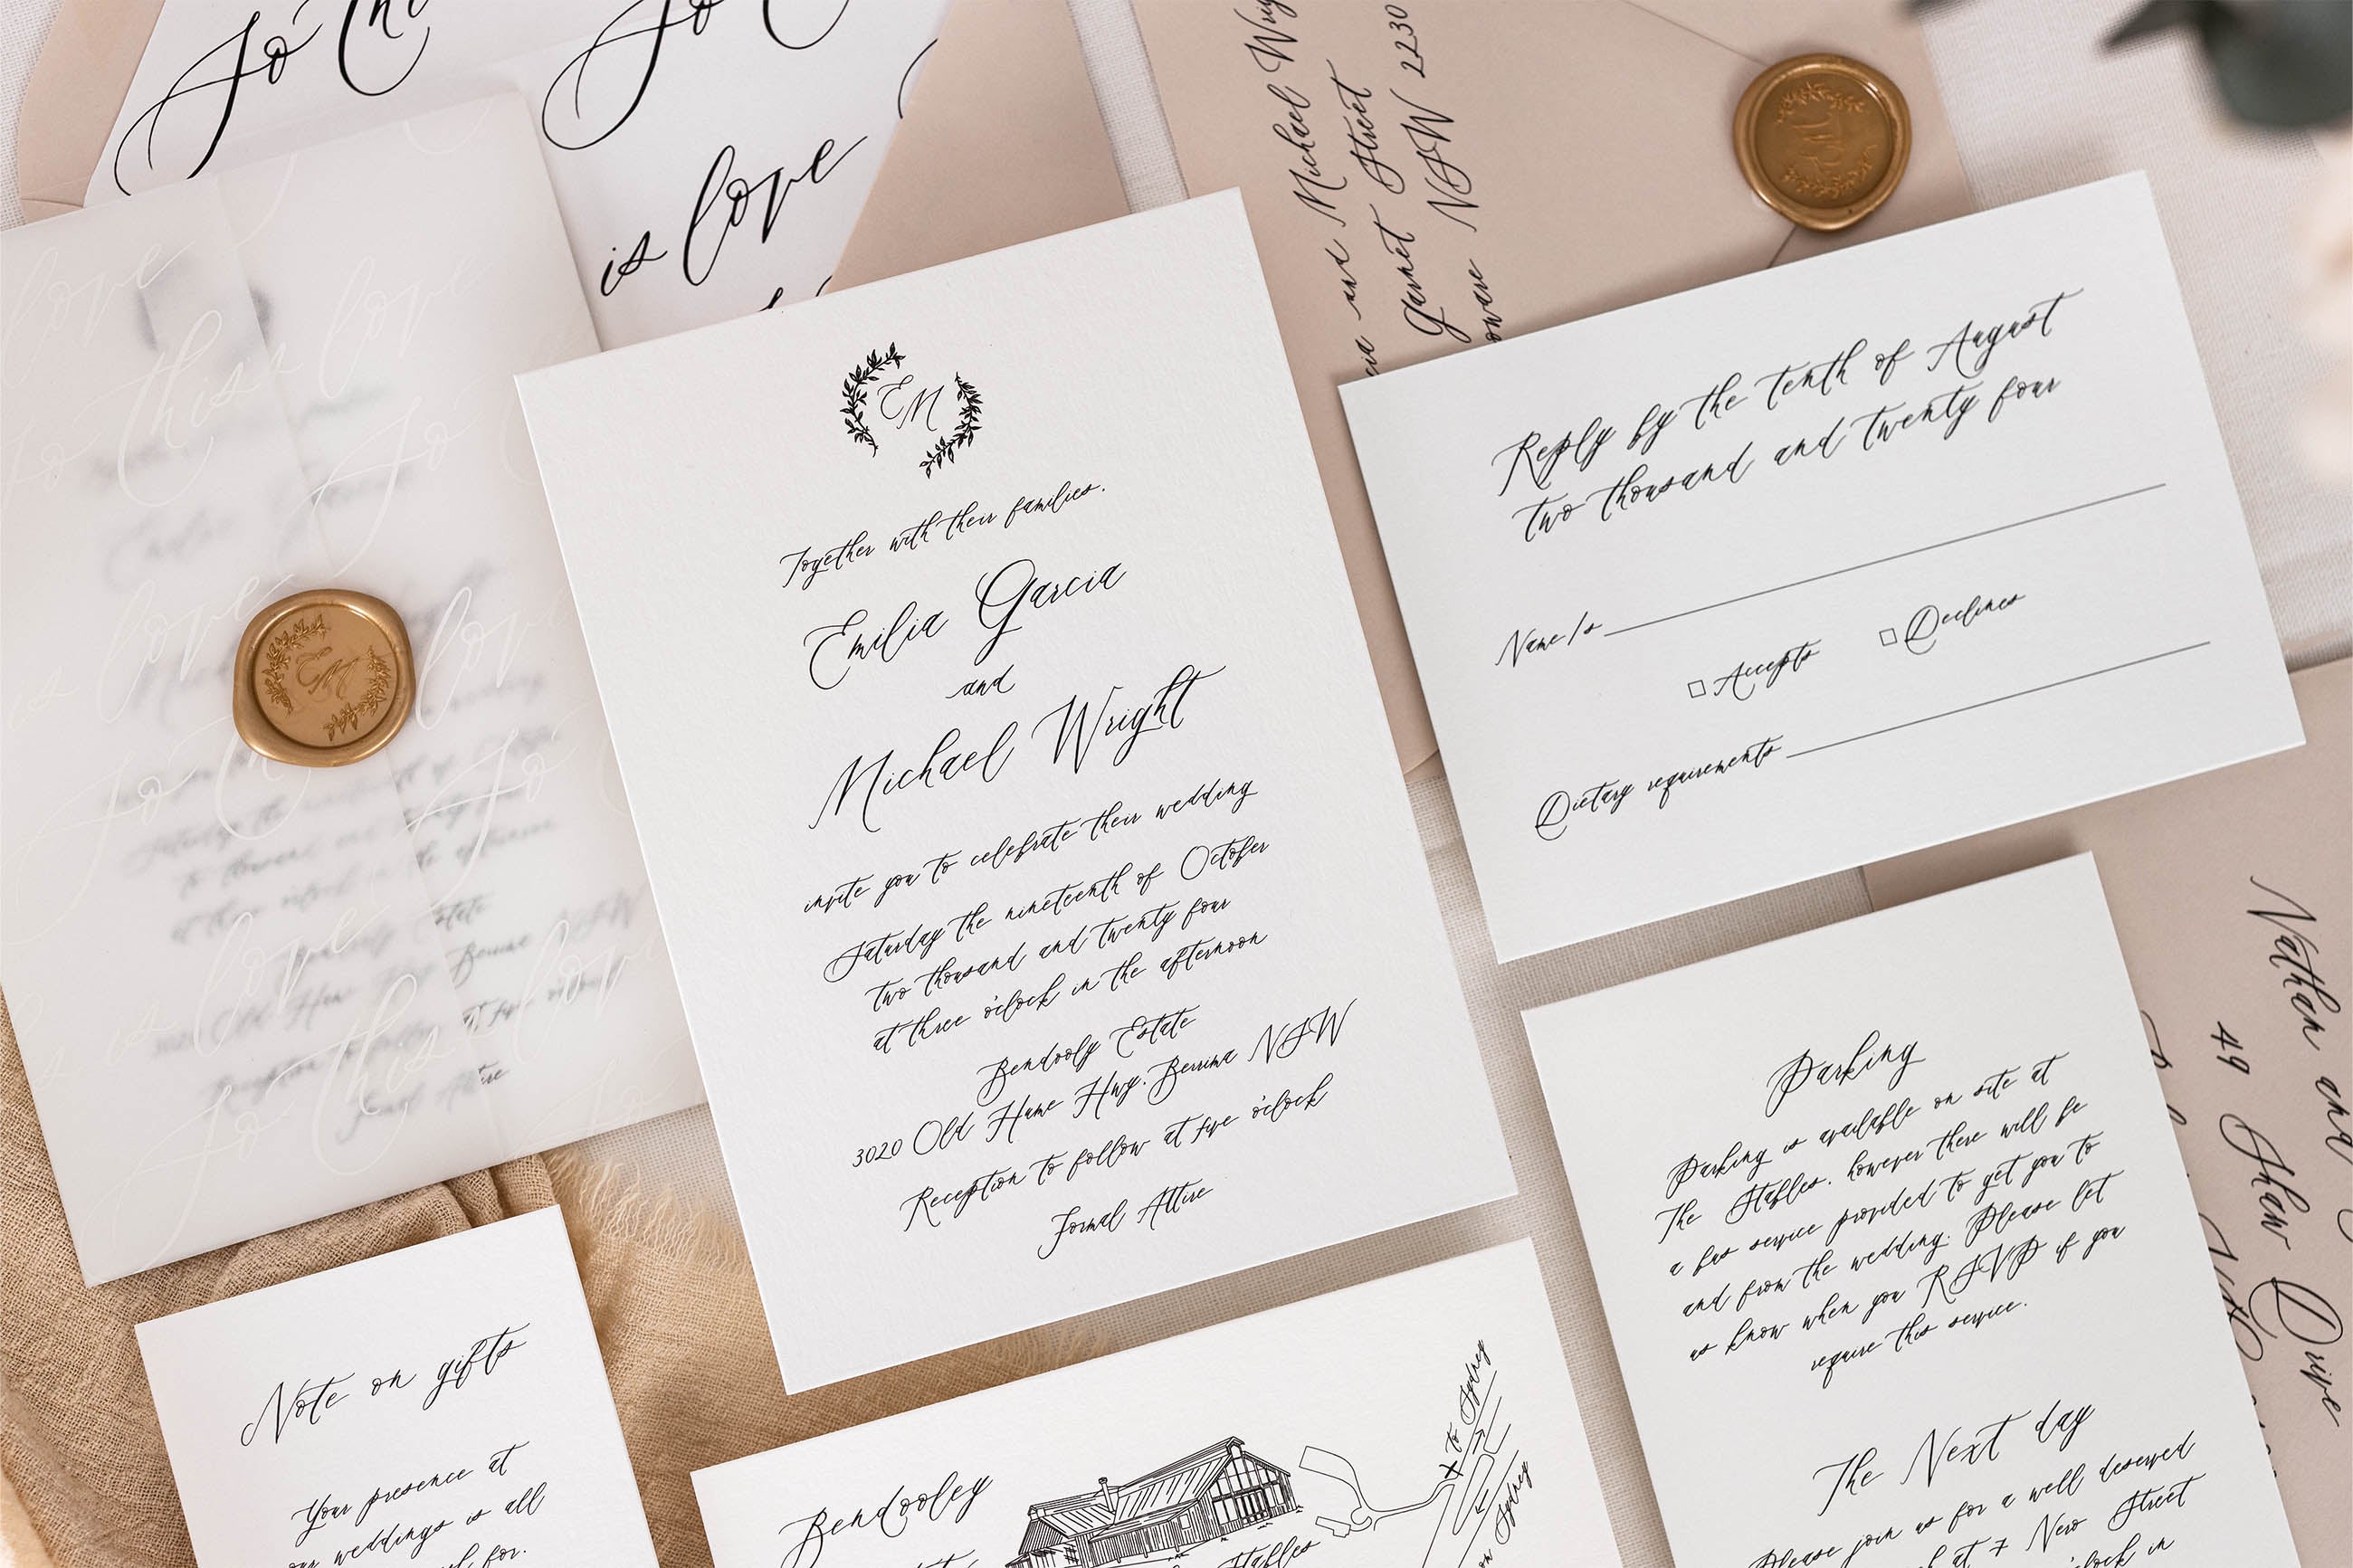 To this
To
is love
love
this is love
To
EM
EM
Together with their families,
Emilia Garcia
and
Michael Wright
invite you to celebrate their wedding
Saturday the nineteenth of October
two thousand and twenty four
at three o'clock in the afternoon
Bendooly Estate
3020 Old Hume Hwy, Berrima NSW
Reception to follow at five o'clock
Formal Attire
and Michael
Garnet Street
NSW 2230
EM
Reply by the tenth of August
two thousand and twenty four
Name/s
Accepts
Declines
Dietary requirements
Parking
Parking is available on site at
The Stables, however there will be
a bus service provided to get you to
and from the wedding. Please let
us know when you RSVP if you
require this service.
The Next day
Please join us for a well deserved
at 7 New Street
o'clock in
Nathan and
49 Shaw Drive
Note on gifts
Your presence at
our weddings is all
for.
Bendooley
Stables
to Sydney
Sydney